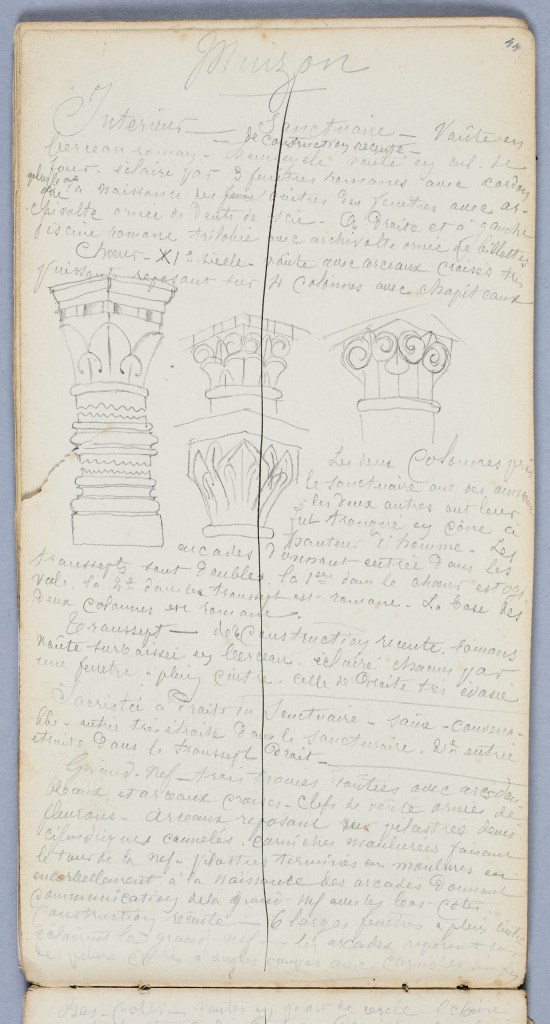 44
Muizon
Intérieur — Sanctuaire — Voûte en
de construction récente —
berceau roman — voûté en cul de
four. éclairé par 3 fenêtres romanes avec cordon
à la naissance des cintres des fenêtres avec ar-
chivolte ornée de dents de scie. A Droite et à gauche
piscine romane trilobée avec archivolte ornée de billettes
Choeur — XIe siècle — voûte avec arceaux croisés très
puissant reposant sur 4 colonnes avec chapiteaux
Les deux colonnes près
le sanctuaire ont des anneaux
les deux autres ont leur
fut tronqué en cône à
hauteur d'homme — Les
arcades donnant entrée dans les
transsepts sont doubles. la 1ère dans le choeur est ogi-
vale, la 2e dans le transsept est romane — La base des
deux colonnes est romane.
Transsept — de construction récente. romans
voûte surbaissée en berceau. éclairé chacun par
une fenêtre à plein cintre. celle de Droite très évasée
Sacristie à Droite du Sanctuaire — saine — convena-
ble — entrée très étroite Dans le sanctuaire. 2e entrée
étroite Dans le transsept Droit —
Grand-Nef — trois travées voûtées avec arcs dou-
bleaux et arceaux croisés — clefs de voûte ornées de
fleurons — Arceaux reposant sur pilastres demi
cylindriques cannelés. corniches moulurées faisant
le tour de la nef — pilastres terminés en moulures en
encorbellement à la naissance des arcades Donnant
communication de la grand-nef avec les bas-côtés
Construction récente — 6 larges fenêtres à plein cintre
éclairent la grand-nef — les arcades reposent sur
des piliers carrés à angles coupés avec corniches
Bas-Côtés — voûtés en quart de cercle éclairé